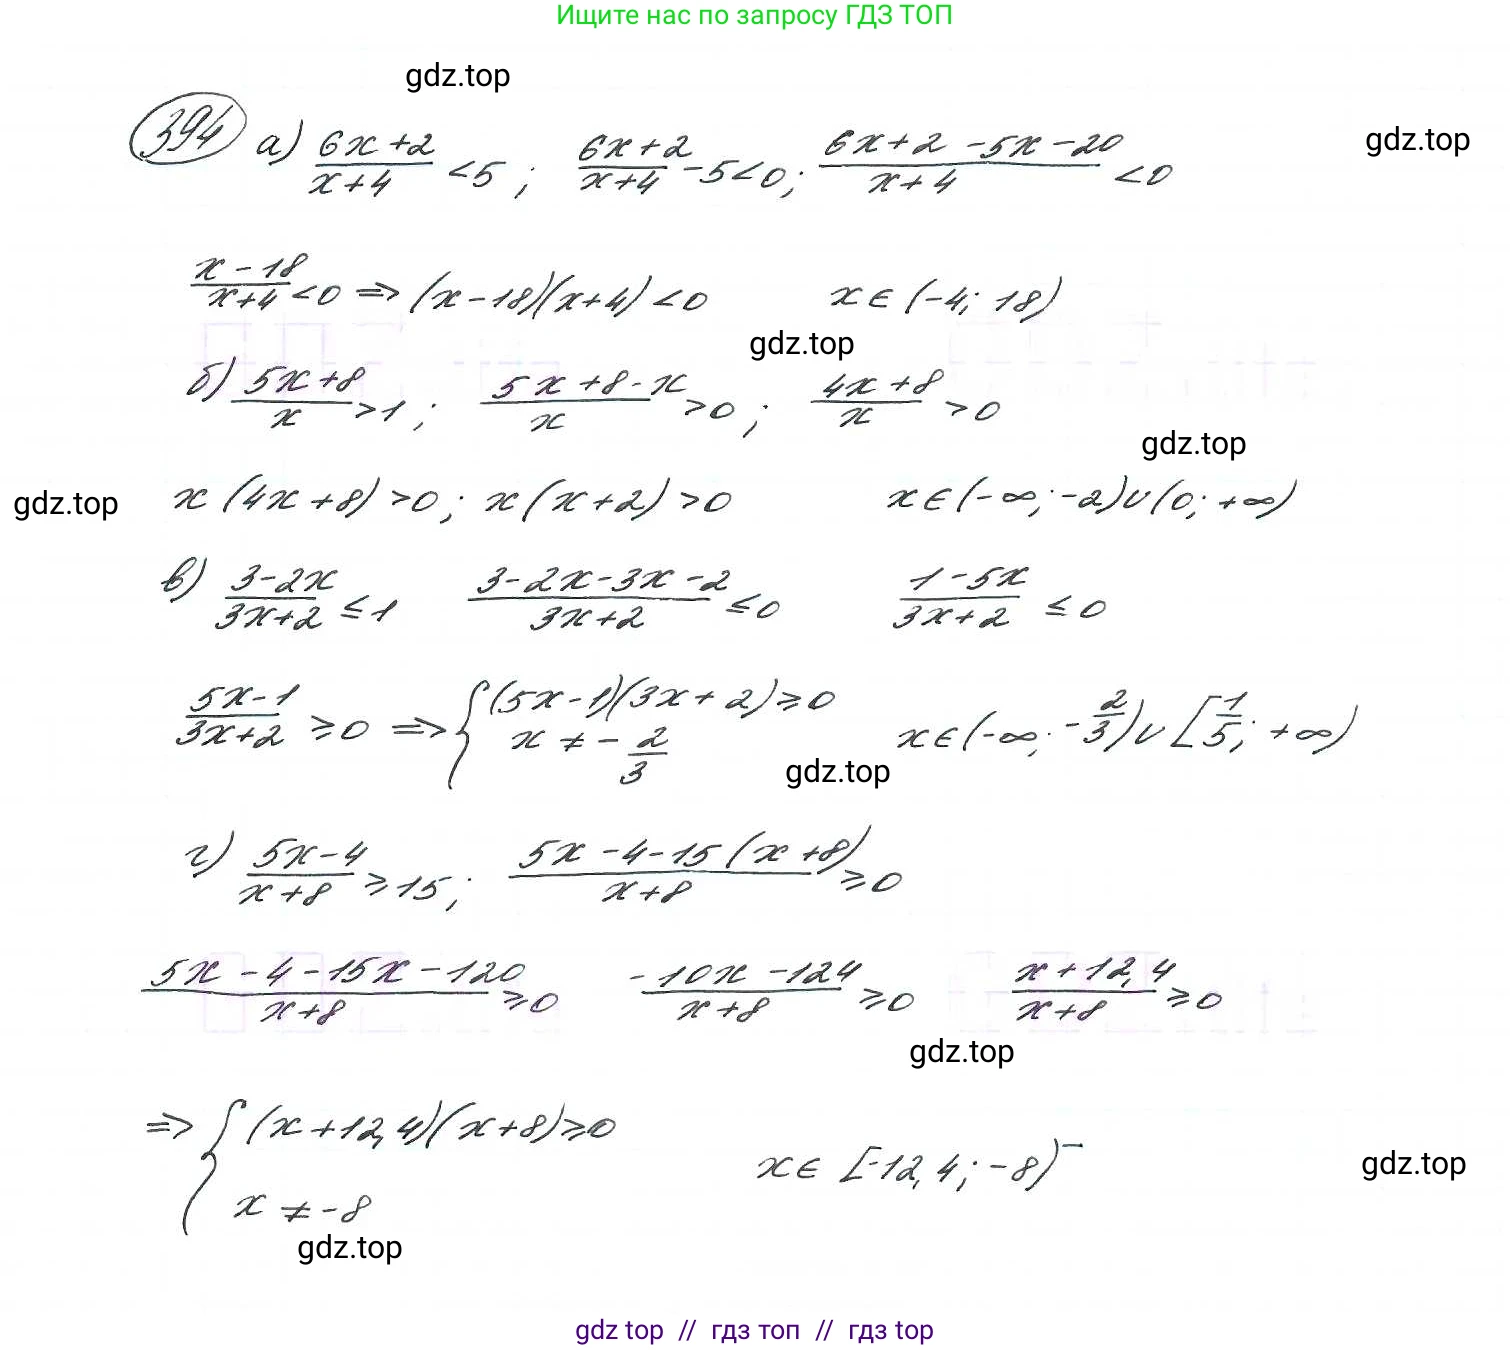 Ищите нас по запросу ГДЗ ТОП
gdz.top
394 а) (6x+2)/(x+4) <5 ; (6x+2)/(x+4) -5<0; (6x+2 -5x-20)/(x+4) <0
gdz.top
(x-18)/(x+4) <0 => (x-18)(x+4) <0 x∈(-4; 18)
gdz.top
б) (5x+8)/x >1 ; (5x+8-x)/x >0 ; (4x+8)/x >0
gdz.top
gdz.top
x(4x+8)>0; x(x+2)>0 x∈(-∞; -2)∪(0; +∞)
в) (3-2x)/(3x+2) ≤1 (3-2x-3x-2)/(3x+2) ≤0 (1-5x)/(3x+2) ≤0
(5x-1)/(3x+2) ≥0 => { (5x-1)(3x+2)≥0
x ≠ -2/3 x∈(-∞; -2/3)∪[1/5; +∞)
gdz.top
г) (5x-4)/(x+8) ≥15; (5x-4-15(x+8))/(x+8) ≥0
(5x-4-15x-120)/(x+8) ≥0 (-10x-124)/(x+8) ≥0 (x+12,4)/(x+8) ≥0
gdz.top
=> { (x+12,4)(x+8)≥0
x ≠ -8 x∈ [-12,4; -8)
gdz.top
gdz.top
gdz top // гдз топ // гдз top